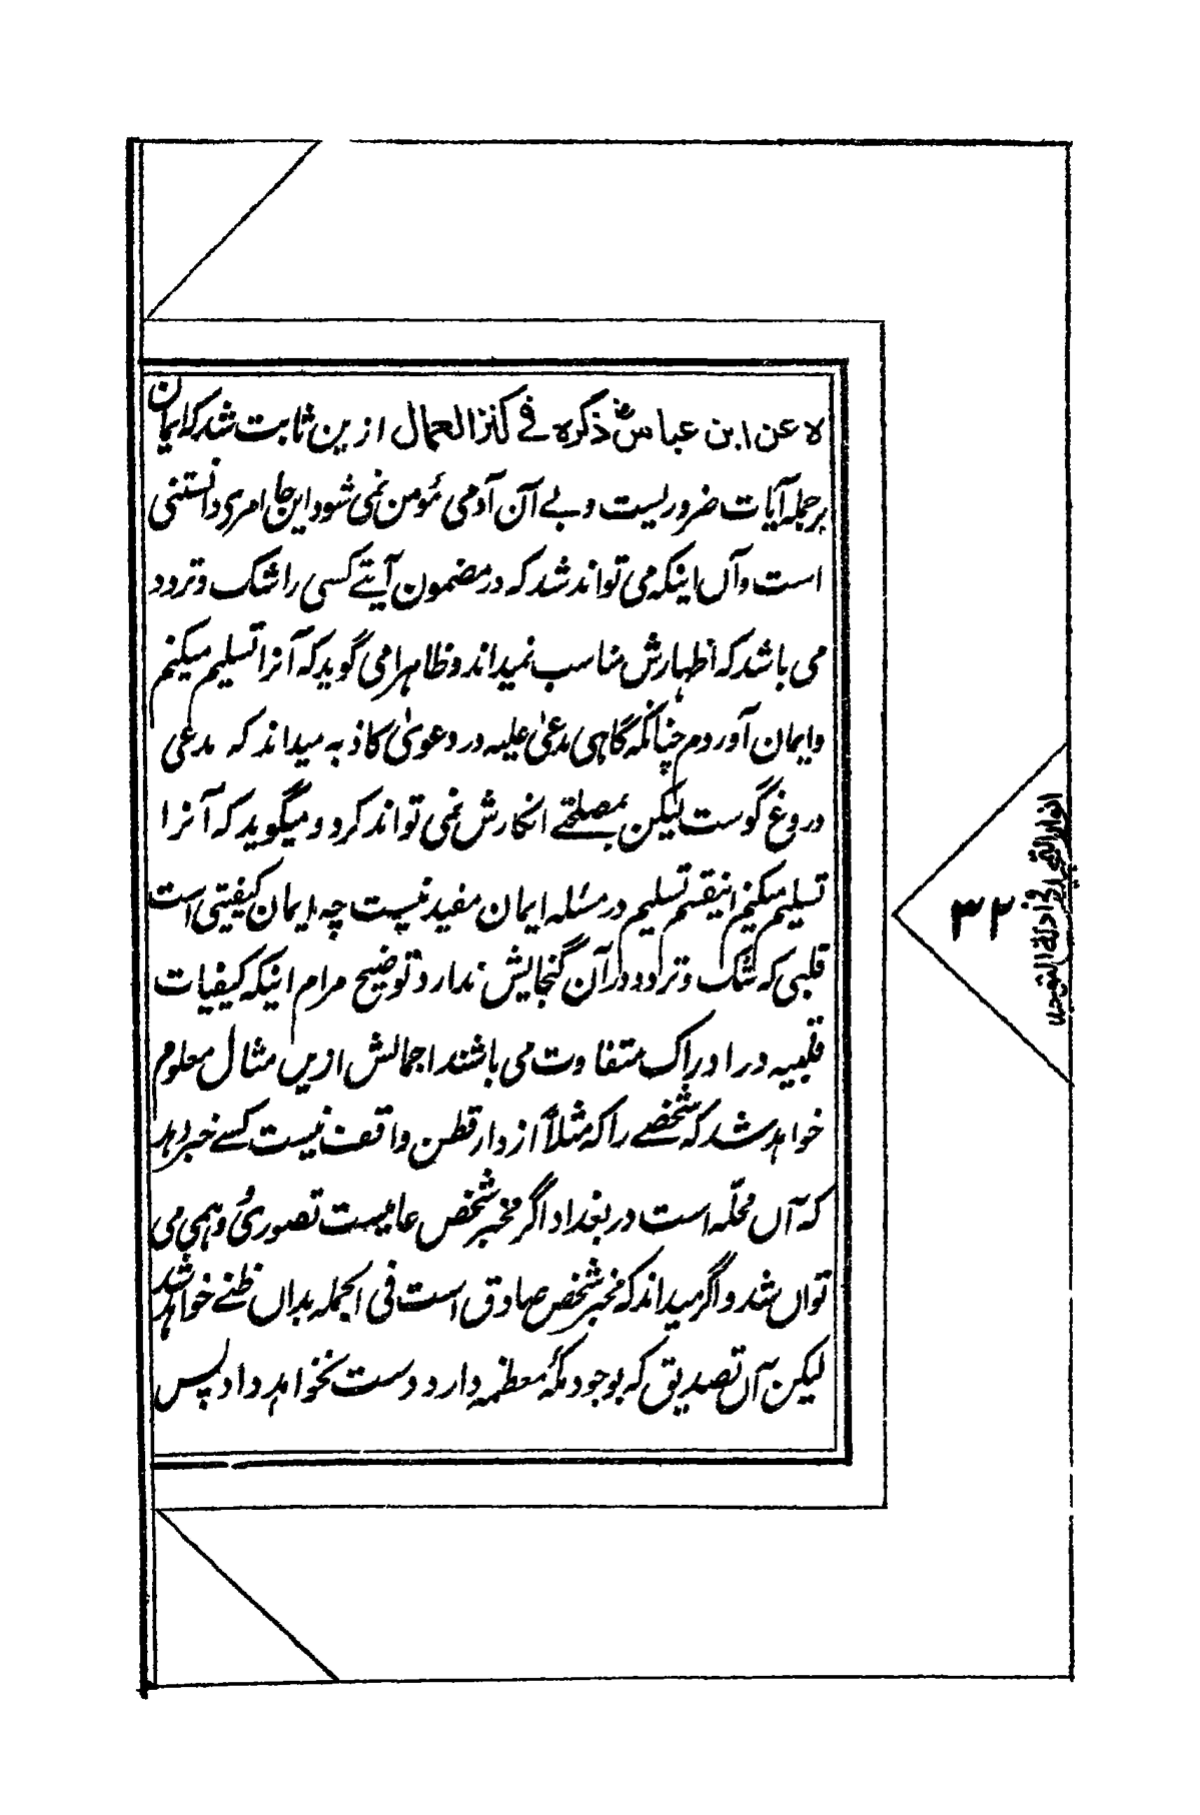 لا عن ابن عباسؓ ذکره فے کنز العمال ازین ثابت شد که ایمان
بر جمله آیات ضروریست و بے آن آدمی مؤمن نمی شود این جا امری دانستنی
است و آں اینکه می تواند شد که در مضمون آیتے کسی را شک و تردد
می باشد که اظهارش مناسب نمیداند و ظاهرا می گوید که آنرا تسلیم میکنم
و ایمان آوردم چنانکه گاہی مدعیٰ علیه در دعویٰ کاذبه میداند که مدعی
دروغ گوست لیکن بمصلحتے انکارش نمی تواند کرد و میگوید که آنرا
تسلیم میکنم اینقسم تسلیم در مسئله ایمان مفید نیست چه ایمان کیفیتی است
قلبی که شک و تردد در آن گنجایش ندارد و توضیح مرام اینکه کیفیات
قلبیه در ادراک متفاوت می باشند اجمالش ازیں مثال معلوم
خواهد شد که شخصے را که مثلاً از دار قطن واقف نیست کسے خبر دهد
که آں محلّه است در بغداد اگر مخبر شخص عامیست تصوری و وهمی می
تواں شد و اگر میداند که مخبر شخص صادق است فی الجمله بداں ظنے خواهد شد
لیکن آں تصدیق که بوجود مکۂ معظمه دارد دست نخواهد داد پس
۳۲